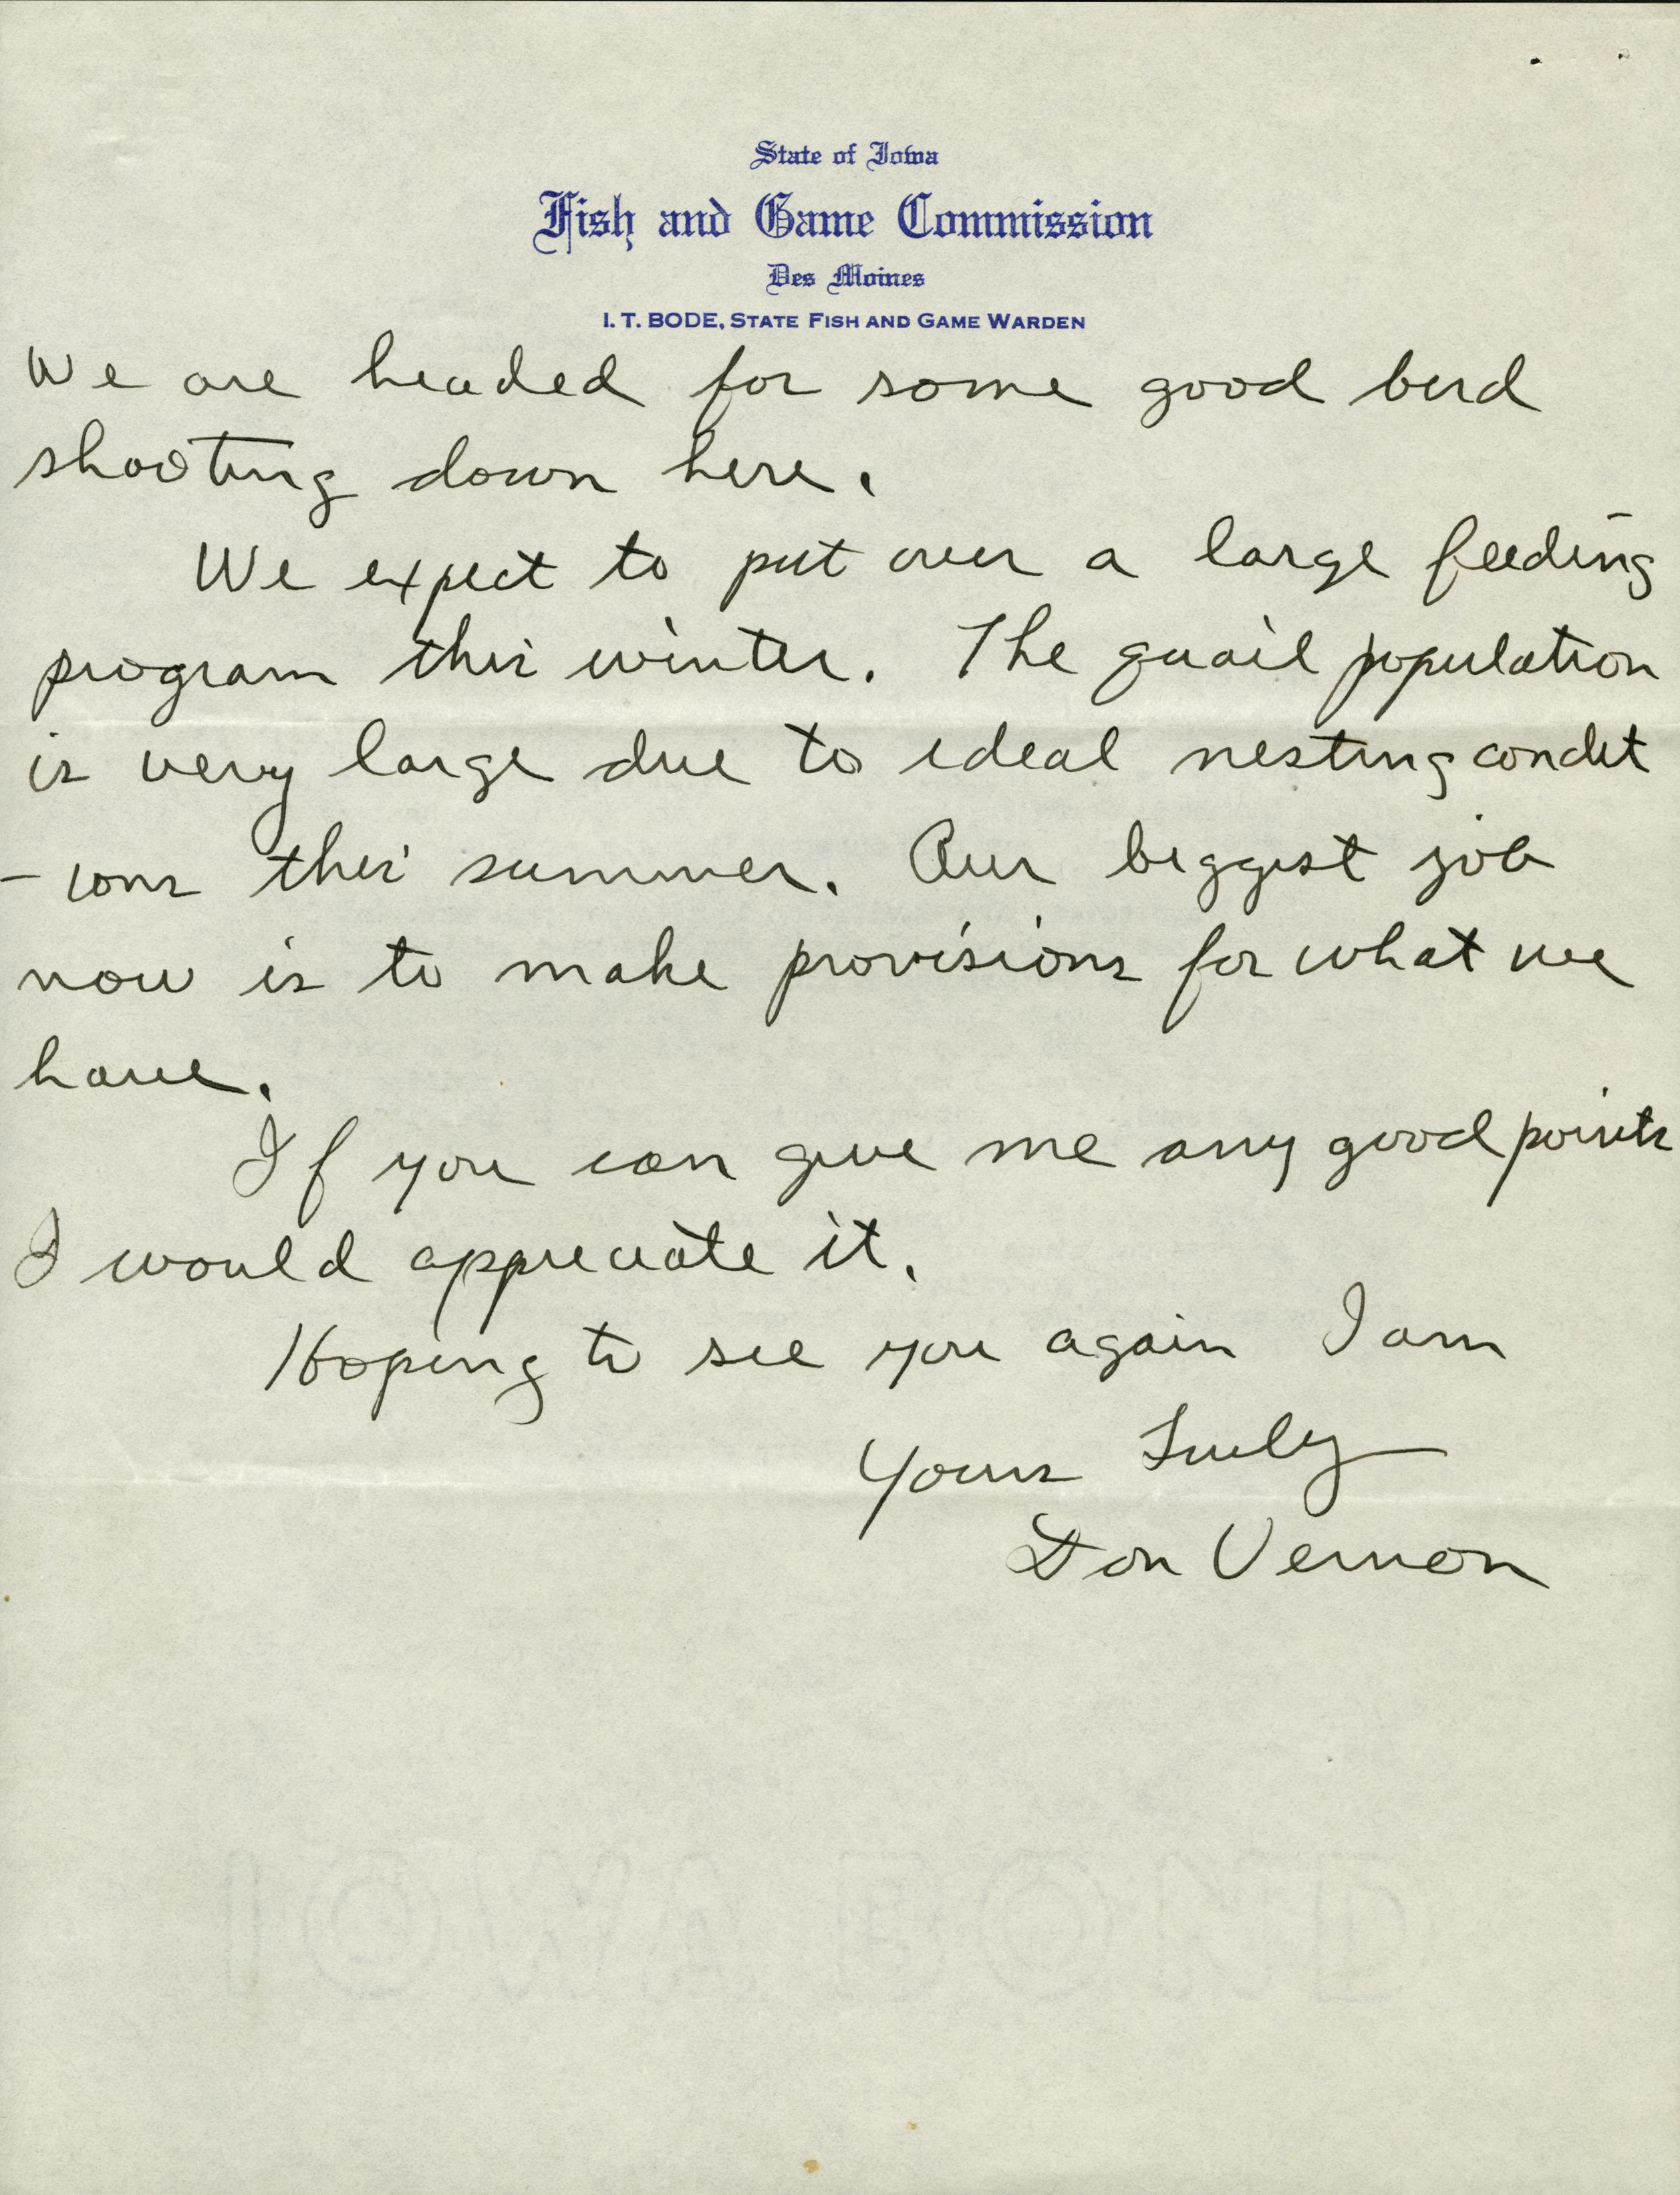 State of Iowa
Fish and Game Commission
Des Moines
I. T. BODE, STATE FISH AND GAME WARDEN
We are headed for some good bird
shooting down here.
We expect to put over a large feeding
program this winter. The quail population
is very large due to ideal nesting condit
- ions this summer. Our biggest job
now is to make provisions for what we
have.
If you can give me any good points
I would appreciate it.
Hoping to see you again I am
Yours Truly
Don Vernon